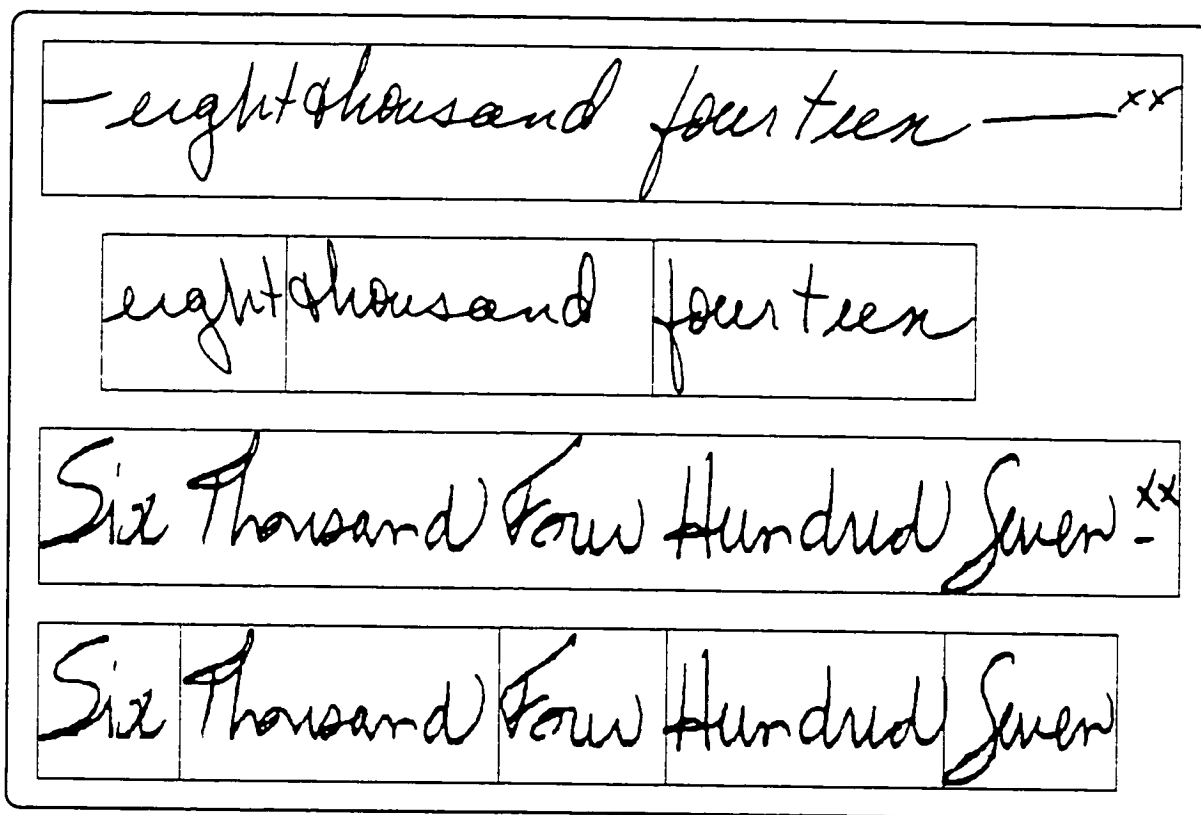 — eight thousand fourteen — xx
eight thousand fourteen
Six Thousand Four Hundred Seven - xx
Six Thousand Four Hundred Seven